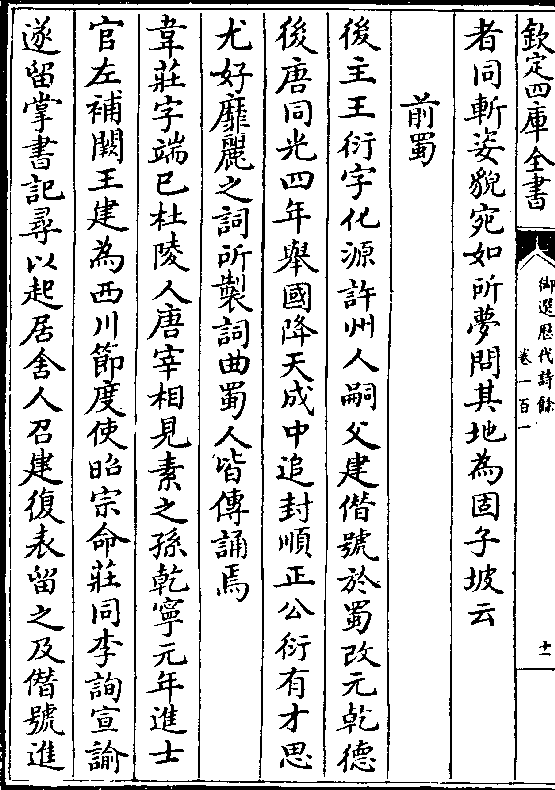 欽定四庫全書
御選歷代詩餘
卷一百一
十一
者同斬姿貌宛如所夢問其地為固子坡云
前蜀
後主王衍字化源許州人嗣父建僭號於蜀改元乾德
後唐同光四年舉國降天成中追封順正公衍有才思
尤好靡麗之詞所製詞曲蜀人皆傳誦焉
韋莊字端已杜陵人唐宰相見素之孫乾寧元年進士
官左補闕王建為西川節度使昭宗命莊同李詢宣諭
遂留掌書記尋以起居舍人召建復表留之及僭號進